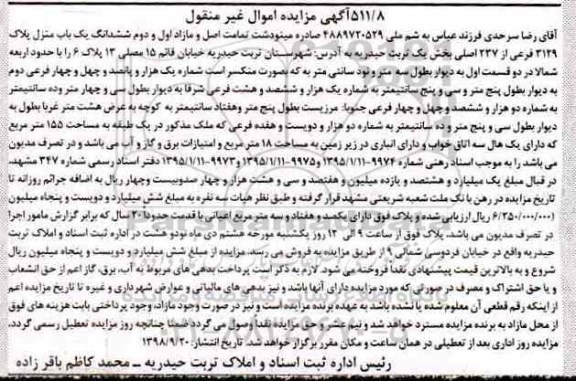 ۵۱۱/۸آگهی مزایده اموال غیر منقول
آقای رضا سرحدی فرزند عباس به شم ملی ۴۸۸۹۷۲۰۵۲۹ صادره مینودشت تمامت اصل و مازاد اول و دوم ششدانگ یک باب منزل پلاک
۳۱۲۹ فرعی از ۲۳۷ اصلی بخش یک تربت حیدریه به آدرس: شهرستان تربت حیدریه خیابان قائم ۱۵ مصلی ۱۳ پلاک ۶ را با حدود اربعه
شمالا در دو قسمت اول به دیوار بطول سه متر و نود سانتی متر به که بصورت منکسر است شماره یک هزار و پانصد و چهل و چهار فرعی دوم
به دیوار بطول پنج متر و سی و پنج سانتیمتر به شماره یک هزار و ششصد و هشت فرعی شرقا به دیوار بطول سی و چهار متر وده سانتیمتر
به شماره دو هزار و ششصد و چهل و چهار فرعی جنوبا: مرزیست بطول پنج متر وهفتاد سانتیمتر به کوچه به عرض هشت متر غربا بطول به
دیوار بطول سی و پنج متر و ده سانتیمتر به شماره دو هزار و دویست و هفده فرعی که ملک مذکور در یک طبقه به مساحت ۱۵۵ متر مربع
که دارای یک هال سه اتاق خواب و دارای انباری در زیر زمین به مساحت ۱۸ متر مربع و امتیازات برق و گاز و آب می باشد و در تصرف مدیون
می باشد را به موجب اسناد رهنی شماره ۹۹۷۴-۱۳۹۵/۱/۱۱ و۹۹۷۵-۱۳۹۵/۱/۱۱ ۹۹۷۳-۱۳۹۵/۱/۱۱ دفتر اسناد رسمی شماره ۳۴۷ مشهد،
در قبال مبلغ یک میلیارد و هشتصد و یازده میلیون و هفتصد و سی و هشت هزار و چهار صدوبیست وچهار ریال به اضافه جرائم روزانه تا
تاریخ مزایده در رهن با نک ملت شعبه شریعتی مشهد قرار گرفته و طبق نظر هیات سه نفره به مبلغ شش میلیارد و دویست و پنجاه میلیون
(۶/۲۵۰/۰۰۰/۰۰۰ ریال ارزیابی شده و پلاک فوق دارای یکصد و هفتاد و سه متر مربع اعیانی با قدمت حدودا ۲۰ سال که برابر گزارش مامور اجرا
در تصرف مدیون می باشد. پلاک فوق از ساعت ۹ الی ۱۲ روز یکشنبه مورخه هشتم دی ماه نودو هشت در اداره ثبت اسناد و املاک تربت
حیدریه واقع در خیابان فردوسی شمالی ۹ از طریق مزایده به فروش می رسد. مزایده از مبلغ شش میلیارد و دویست و پنجاه میلیون ریال
شروع و به بالاترین قیمت پیشنهادی نقدا فروخته می شود. لازم به ذکر است پرداخت بدهی های مربوط به آب، برق، گاز اعم از حق انشعاب
و یا حق اشتراک و مصرف در صورتی که مورد مزایده دارای آنها باشد و نیز بدهی های مالیاتی و عوارض شهرداری و غیره تا تاریخ مزایده اعم
از اینکه رقم قطعی آن معلوم شده یا نشده باشد به عهده برنده مزایده است و نیز در صورت وجود مازاد، وجوه پرداختی بابت هزینه های فوق
از محل مازاد به برنده مزایده مسترد خواهد شد و نیم عشر و حق مزایده نقدا وصول می گردد ضمنا چنانچه روز مزایده تعطیل رسمی گردد،
مزایده روز اداری بعد از تعطیلی در همان ساعت و مکان مقرر برگزار خواهد شد. تاریخ انتشار: ۱۳۹۸/۹/۲۰
رئیس اداره ثبت اسناد و املاک تربت حیدریه ــ محمد کاظم باقر زاده